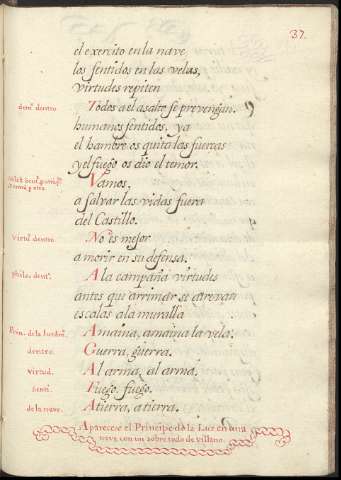 37.
el exercito en la nave
los sentidos en las velas,
virtudes repiten
demº. dentro Todos a el asalto se prevengan.
humanos sentidos, ya
el hambre os quita las fuerzas
y el fuego os dio el temor.
Vamos,
a salvar las vidas fuera
del Castillo.
virtuᵈ. dentro No es mejor
a morir en su defensa.
A la campaña virtudes
antes que arrimar se atrevan
escalas a la muralla
Prin. de la luz dentº. Amaina, amaina la vela.
dentro. Guerra, guerra.
virtud. Al arma, al arma.
senti. Fuego, fuego.
de la nave. A tierra, a tierra.
Aparecese el Principe de la Luz en una
nave con un sobre todo de villano.